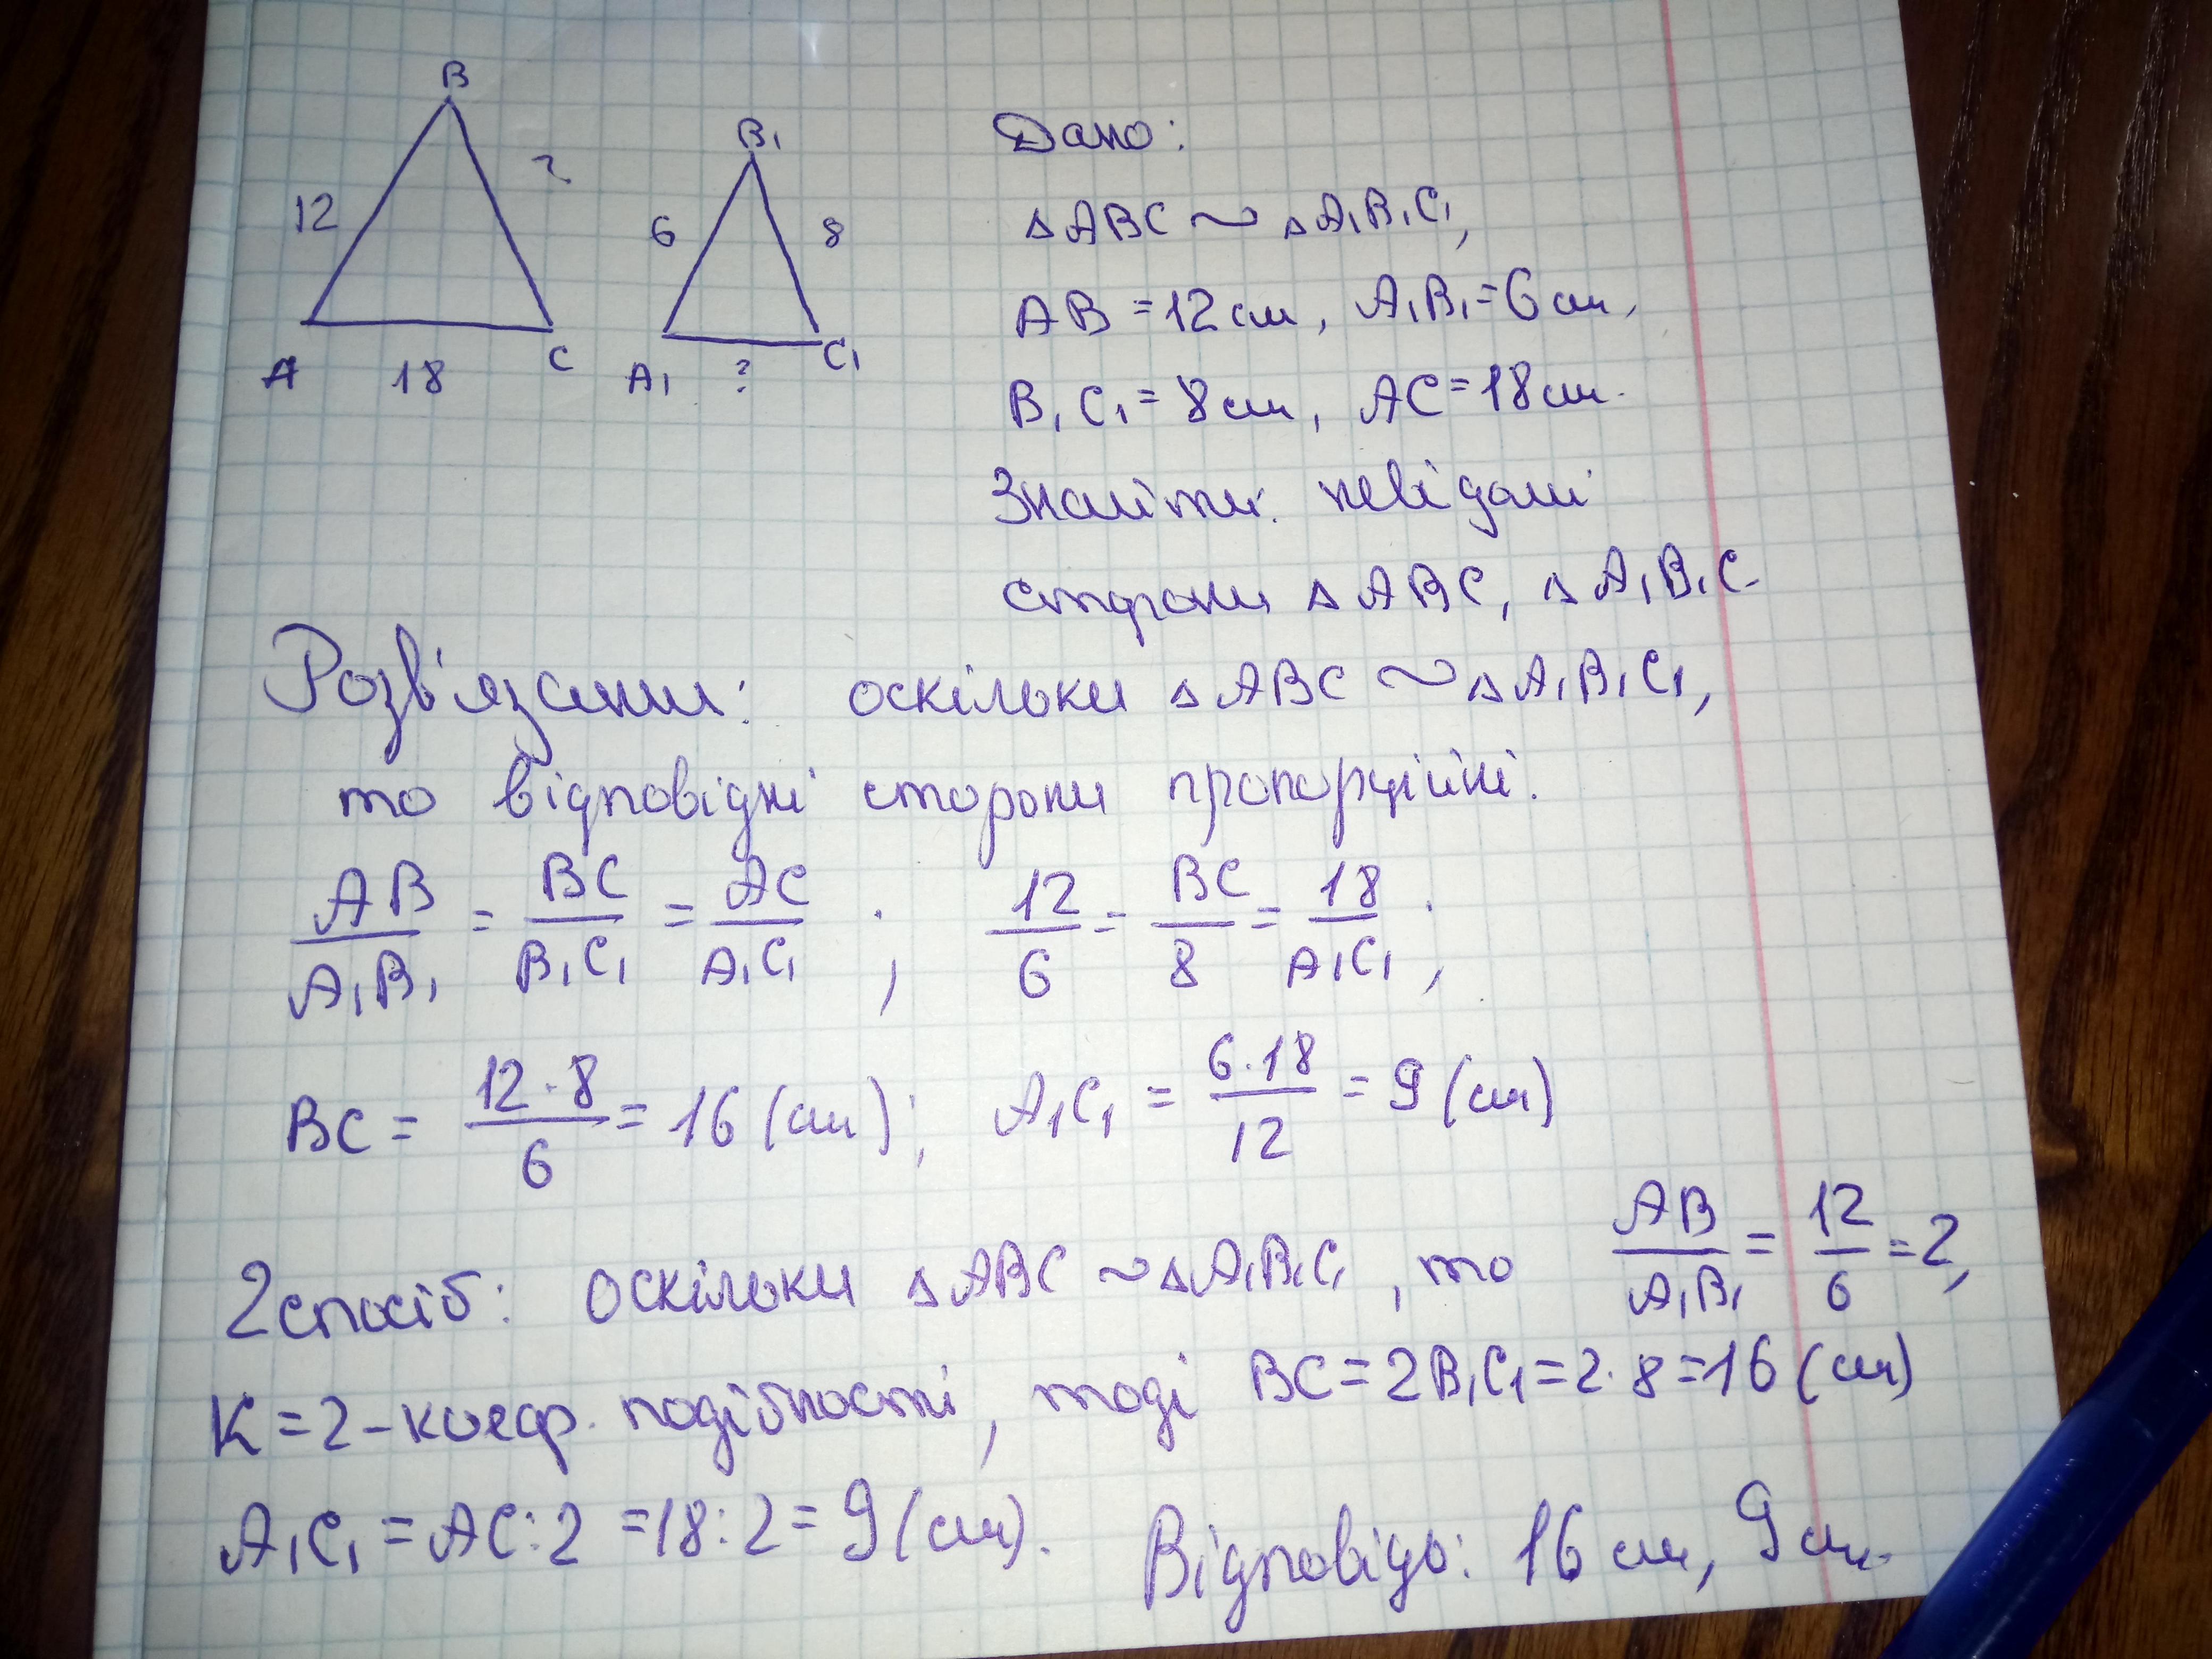 B
B₁
12
?
6
8
A
18
C
A₁
?
C₁
Дано:
△ABC ~ △A₁B₁C₁,
AB = 12 см, A₁B₁ = 6 см,
B₁C₁ = 8 см, AC = 18 см.
Знайти: невідомі
сторони △ABC, △A₁B₁C.
Розв'язання: оскільки △ABC ~ △A₁B₁C₁,
то відповідні сторони пропорційні.
AB/A₁B₁ = BC/B₁C₁ = AC/A₁C₁ ; 12/6 = BC/8 = 18/A₁C₁ ;
BC = 12·8/6 = 16 (см); A₁C₁ = 6·18/12 = 9 (см)
2 спосіб: оскільки △ABC ~ △A₁B₁C₁, то AB/A₁B₁ = 12/6 = 2,
K = 2 – коеф. подібності, тоді BC = 2B₁C₁ = 2·8 = 16 (см)
A₁C₁ = AC:2 = 18:2 = 9 (см). Відповідь: 16 см, 9 см.